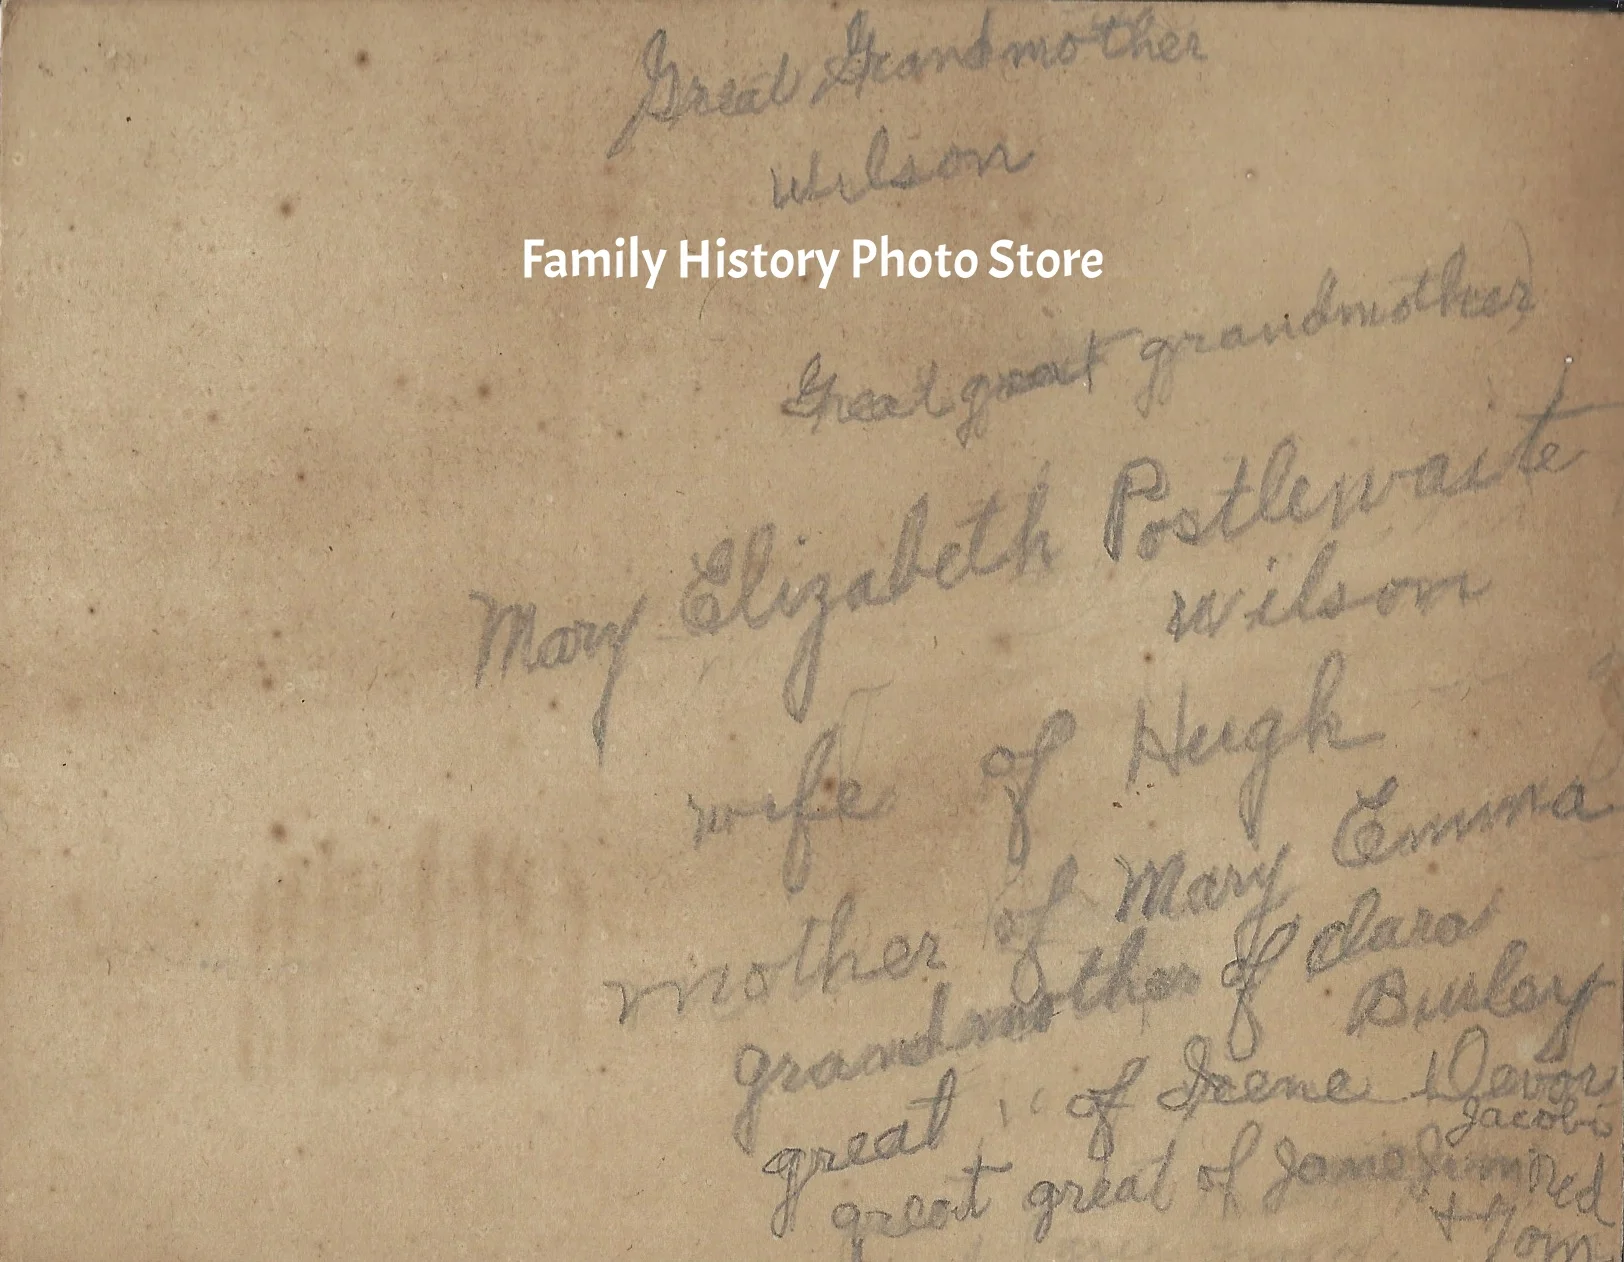 Great Grandmother
Wilson
Family History Photo Store
Great great grandmother
Mary Elizabeth Postlewaite
Wilson
wife of Hugh
mother of Mary Emma
grandmother of Clara
Burley
great " of Irene Devor
Jacobs
great great of Jane Jim Ned
+ Tom